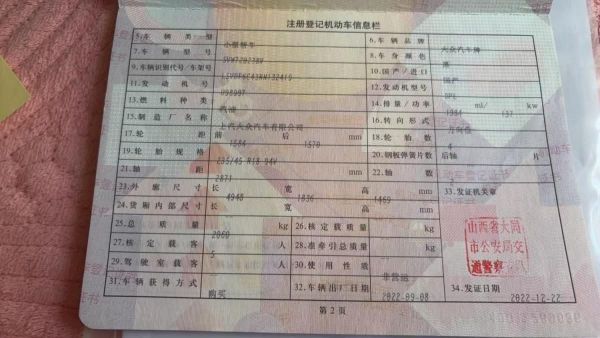 注册登记机动车信息栏
5.车辆类型 小型轿车 6.车辆品牌 大众汽车牌
7.车辆型号 8.车身颜色 黑
9.车辆识别代号/车架号 10.国产/进口 国产
11.发动机号 U98097 12.发动机型号 DPL
13.燃料种类 汽油 14.排量/功率 1984 ml/ 137 kw
15.制造厂名称 上汽大众汽车有限公司 16.转向形式 方向盘
17.轮距 前 1584 后 1570 mm 18.轮胎数 4
19.轮胎规格 235/45 R18 94V 20.钢板弹簧片数 后轴 片
21.轴距 2871 mm 22.轴数
23.外廓尺寸 长 4948 宽 1836 高 1469 mm 33.发证机关章
24.货厢内部尺寸 长 宽 高 mm
25.总质量 2060 kg 26.核定载质量 kg
27.核定载客 5 人 28.准牵引总质量 kg
29.驾驶室载客 人 30.使用性质 非营运
31.车辆获得方式 购买 32.车辆出厂日期 2022-09-08 34.发证日期 2022-12-22
山西省大同
市公安局交
通警察
第2页